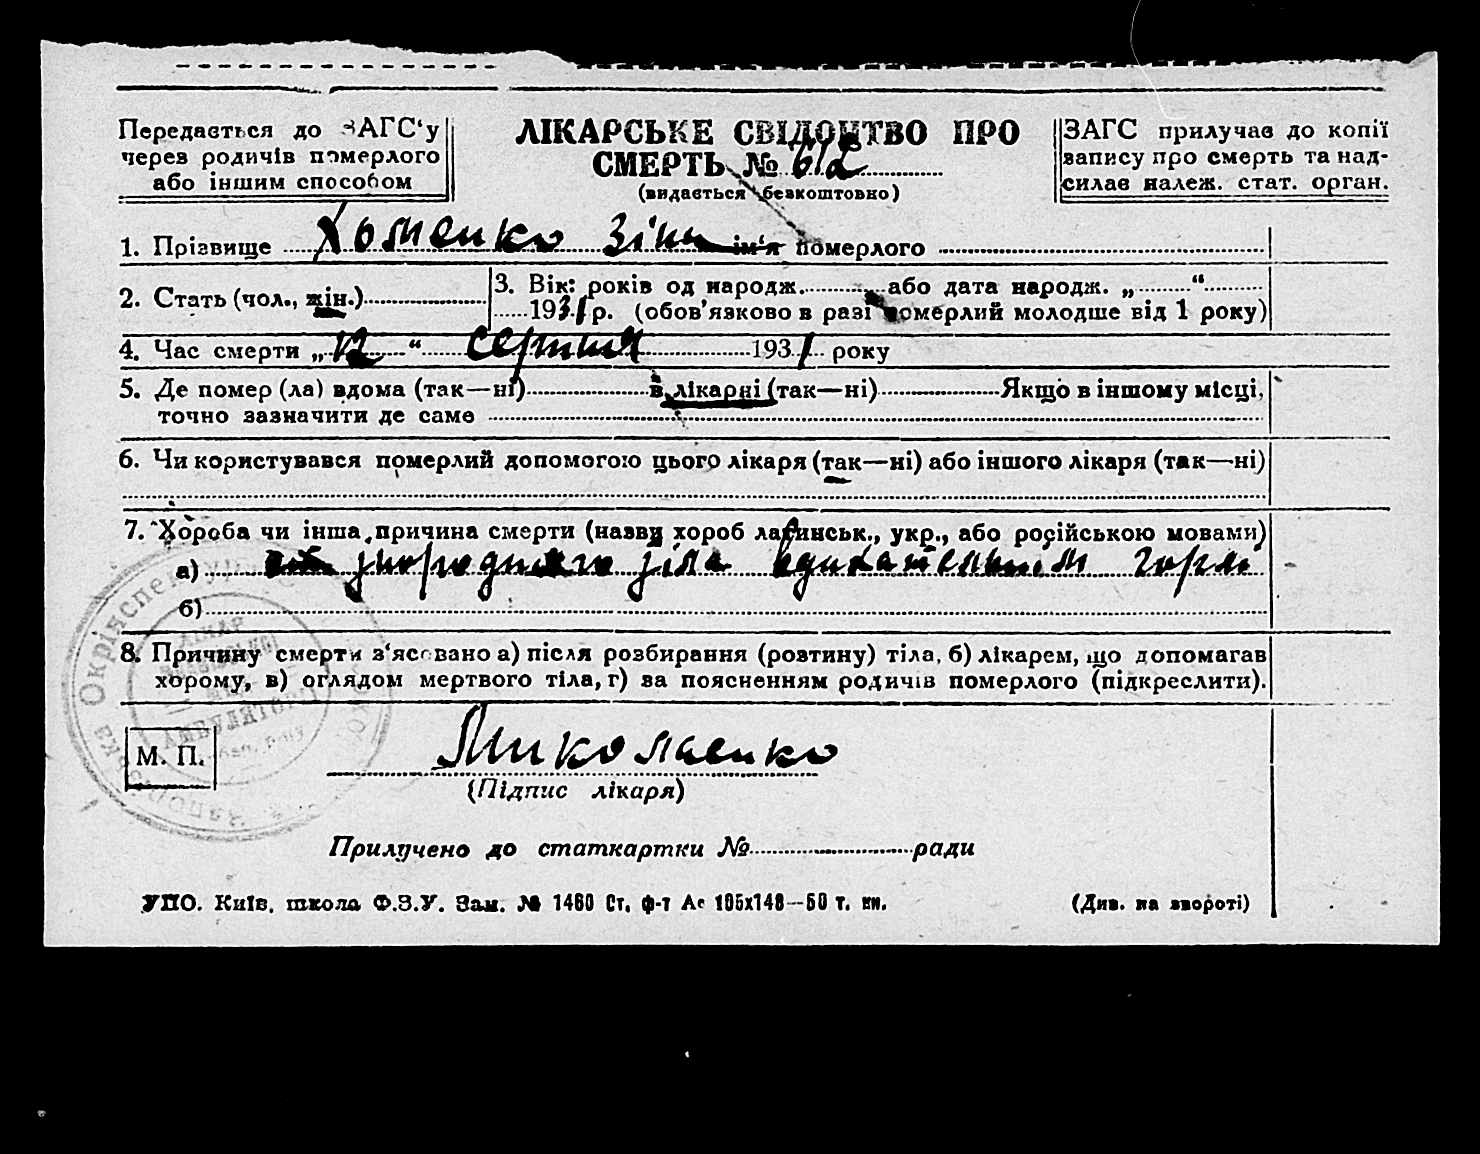 Передається до ЗАГС'у
через родичів померлого
або іншим способом
ЛІКАРСЬКЕ СВІДОЦТВО ПРО
СМЕРТЬ №
(видається безкоштовно)
ЗАГС прилучає до копії
запису про смерть та над-
силає належ. стат. орган.
1. Прізвище Хоменко Зіни ім'я померлого
2. Стать (чол., жін.)
3. Вік: років од народж. або дата народж. „ “
1931 р. (обов'язково в разі померлий молодше від 1 року)
4. Час смерти „12“ серпня 1931 року
5. Де помер (ла) вдома (так—ні) в лікарні (так—ні) Якщо в іншому місці,
точно зазначити де саме
6. Чи користувався померлий допомогою цього лікаря (так—ні) або іншого лікаря (так—ні)
7. Хороба чи інша причина смерти (назву хороб латинськ., укр., або російською мовами)
а) тіла дихательнім горлі
б)
8. Причину смерти з'ясовано а) після розбирання (розтину) тіла, б) лікарем, що допомагав
хорому, в) оглядом мертвого тіла, г) за поясненням родичів померлого (підкреслити).
М. П.
Миколаенко
(Підпис лікаря)
Прилучено до статкартки № ради
УПО. Київ, школа Ф.З.У. Зам. № 1460 Ст. ф-т А6 105х148—50 т. кн.
(Див. на звороті)
Окрінспектура
ЛІКАР